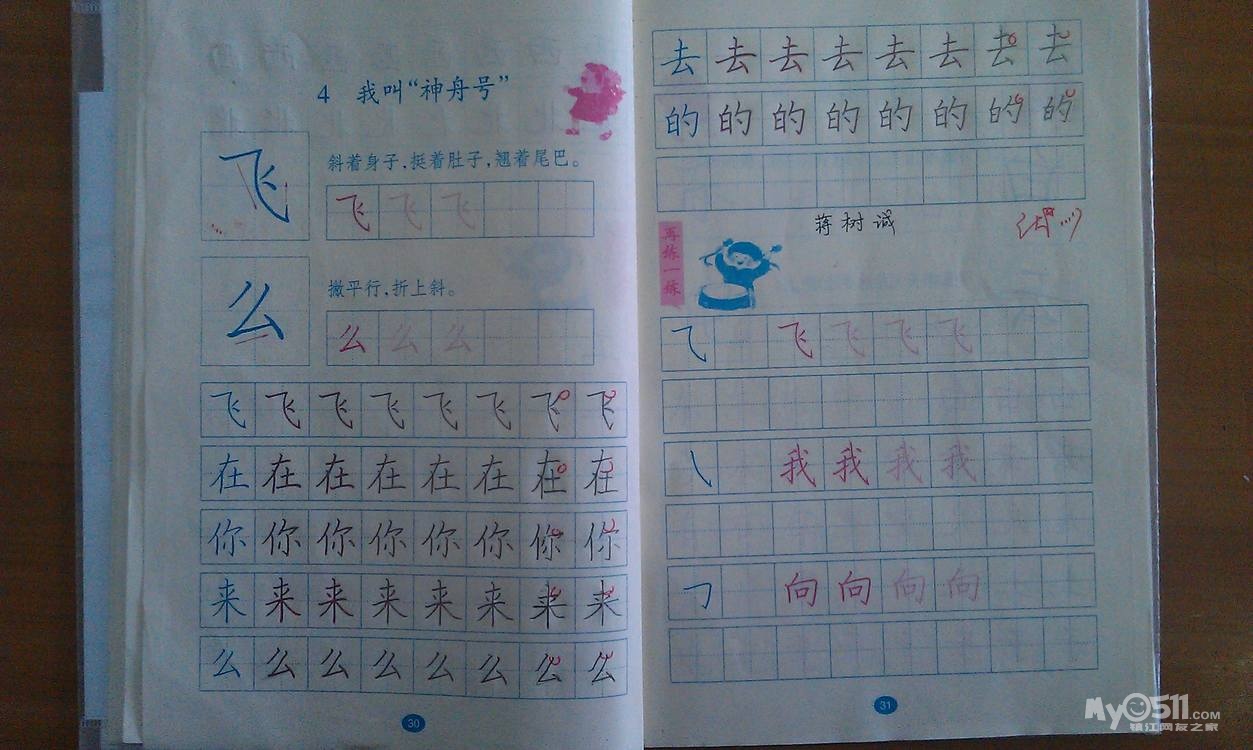 4 我叫“神舟号”
飞
斜着身子，挺着肚子，翘着尾巴。
飞 飞 飞
么
撇平行，折上斜。
么 么 么
飞 飞 飞 飞 飞 飞 飞 飞
在 在 在 在 在 在 在 在
你 你 你 你 你 你 你 你
来 来 来 来 来 来 来 来
么 么 么 么 么 么 么 么
30
去 去 去 去 去 去 去 去
的 的 的 的 的 的 的 的
蒋树诚
再练一练
⺄ 飞 飞 飞 飞
㇏ 我 我 我 我
𠃌 向 向 向 向
31
My0511.COM
镇江网友之家